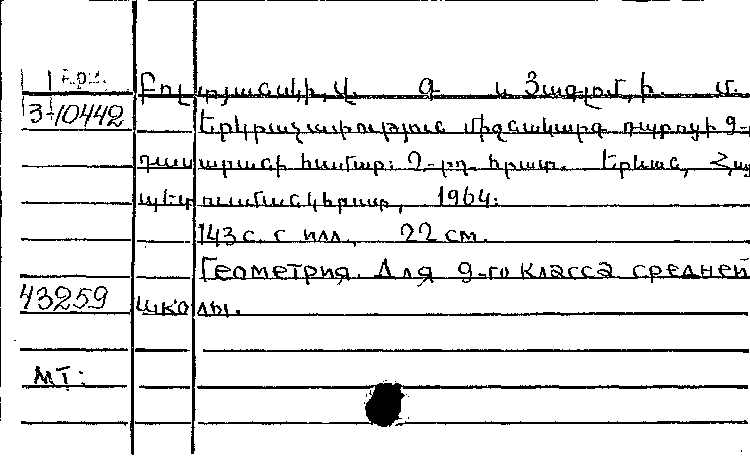 Երև.
Բոլտյանսկի, Վ. Գ. և Յագլոմ, Ի. Մ.
3-10442
Երկրաչափություն միջնակարգ դպրոցի 9-
դասարանի համար: 2-րդ. հրատ. Երևան, Հայ
պետ ուսմանկհրատ, 1964:
143 с. с илл., 22 см.
Геометрия. Для 9-го класса средней
43259
школы.
МТ: